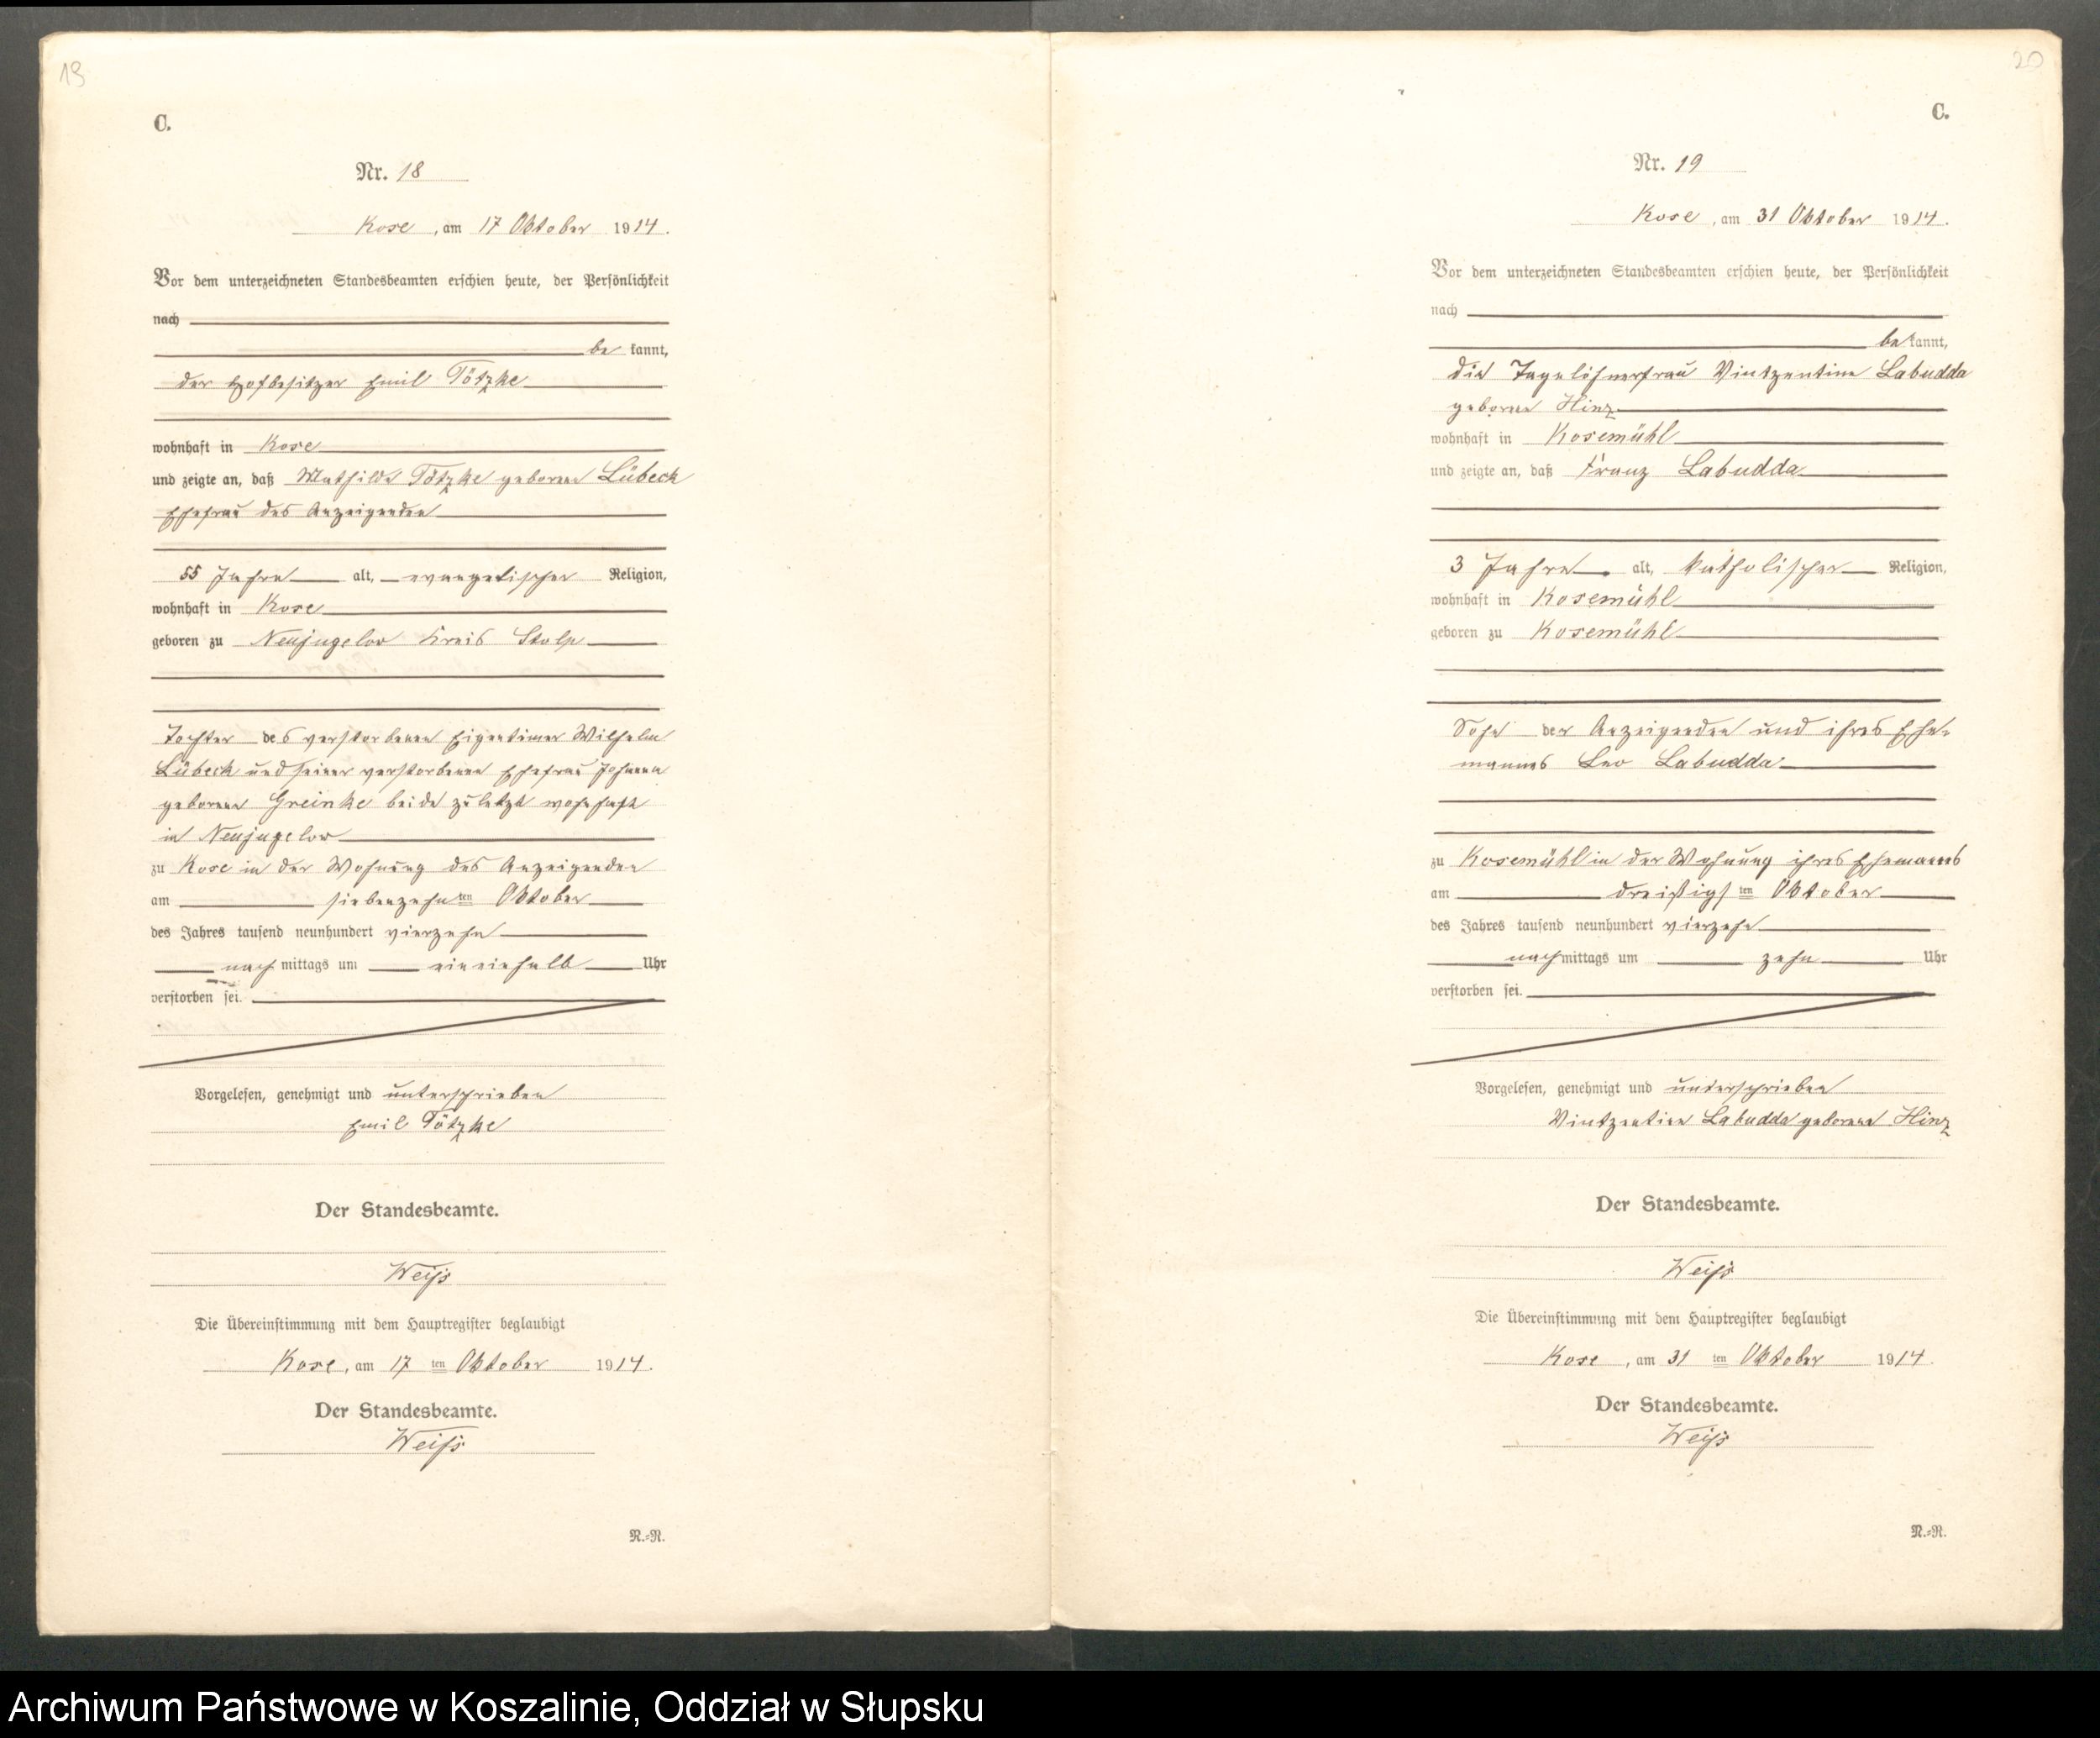 19
C.
Nr. 18
Kose, am 17 Oktober 1914.
Vor dem unterzeichneten Standesbeamten erschien heute, der Persönlichkeit
nach
be kannt,
der Hofbesitzer Emil Tötzke
wohnhaft in Kose
und zeigte an, daß Mathilde Tötzke geborene Lübeck
Ehefrau des Anzeigenden
55 Jahre alt, evangelischer Religion,
wohnhaft in Kose
geboren zu Neujugelow Kreis Stolp
Tochter des verstorbenen Eigentümer Wilhelm
Lübeck und seiner verstorbenen Ehefrau Johanna
geborene Greinke beide zuletzt wohnhaft
in Neujugelow
zu Kose in der Wohnung des Anzeigenden
am siebenzehnten Oktober
des Jahres tausend neunhundert vierzehn
nach mittags um eineinhalb Uhr
verstorben sei.
Vorgelesen, genehmigt und unterschrieben
Emil Tötzke
Der Standesbeamte.
Weiß
Die Übereinstimmung mit dem Hauptregister beglaubigt
Kose, am 17 ten Oktober 1914.
Der Standesbeamte.
Weiß
R.-R.
20
C.
Nr. 19
Kose, am 31 Oktober 1914.
Vor dem unterzeichneten Standesbeamten erschien heute, der Persönlichkeit
nach
be kannt,
die Tagelöhnerfrau Vintzentine Labudda
geborene Hinz
wohnhaft in Kosemühl
und zeigte an, daß Franz Labudda
3 Jahre alt, katholischer Religion,
wohnhaft in Kosemühl
geboren zu Kosemühl
Sohn der Anzeigenden und ihres Ehe-
mannes Leo Labudda
zu Kosemühl in der Wohnung ihres Ehemannes
am dreißigsten Oktober
des Jahres tausend neunhundert vierzehn
nach mittags um zehn Uhr
verstorben sei.
Vorgelesen, genehmigt und unterschrieben
Vintzentine Labudda geborene Hinz
Der Standesbeamte.
Weiß
Die Übereinstimmung mit dem Hauptregister beglaubigt
Kose, am 31 ten Oktober 1914.
Der Standesbeamte.
Weiß
R.-R.
Archiwum Państwowe w Koszalinie, Oddział w Słupsku